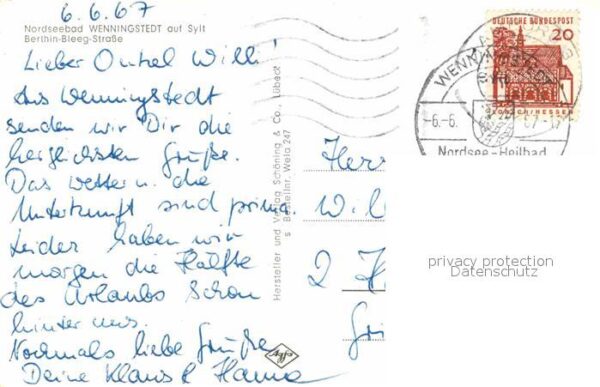 6.6.67
Nordseebad WENNINGSTEDT auf Sylt
Berthin-Bleeg-Straße
Lieber Onkel Willi!
Aus Wenningstedt
senden wir Dir die
herzlichsten Grüße.
Das Wetter u. die
Unterkunft sind prima.
Leider haben wir
morgen die Hälfte
des Urlaubs schon
hinter uns.
Nochmals liebe Grüße
Deine Klaus & Hanna
Hersteller und Verlag Schöning & Co. Lübeck
Bestellnr. Weta 247
Agfa
DEUTSCHE BUNDESPOST
20
LORSCH/HESSEN
WENNINGSTEDT
-6.-6.
Nordsee-Heilbad
Herr
Wil
2 H
privacy protection
Datenschutz